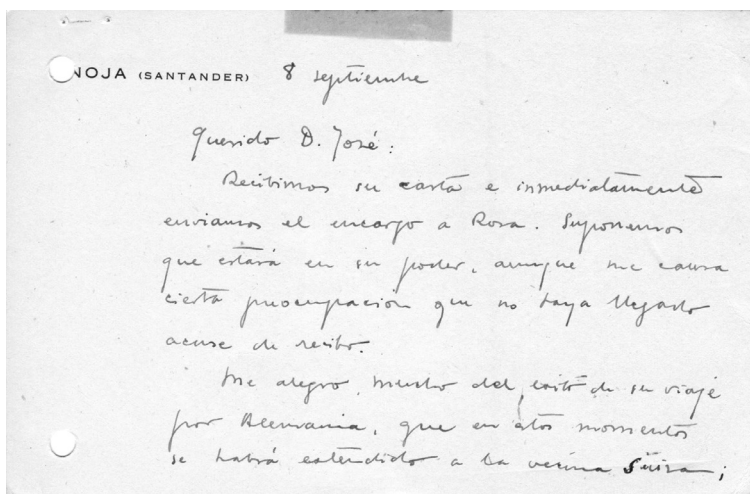 NOJA (SANTANDER) 8 septiembre
Querido D. José:
Recibimos su carta e inmediatamente
enviamos el encargo a Rosa. Suponemos
que estará en su poder, aunque me causa
cierta preocupación que no haya llegado
acuse de recibo.
Me alegro mucho del éxito de su viaje
por Alemania, que en estos momentos
se habrá extendido a la vecina Suiza;